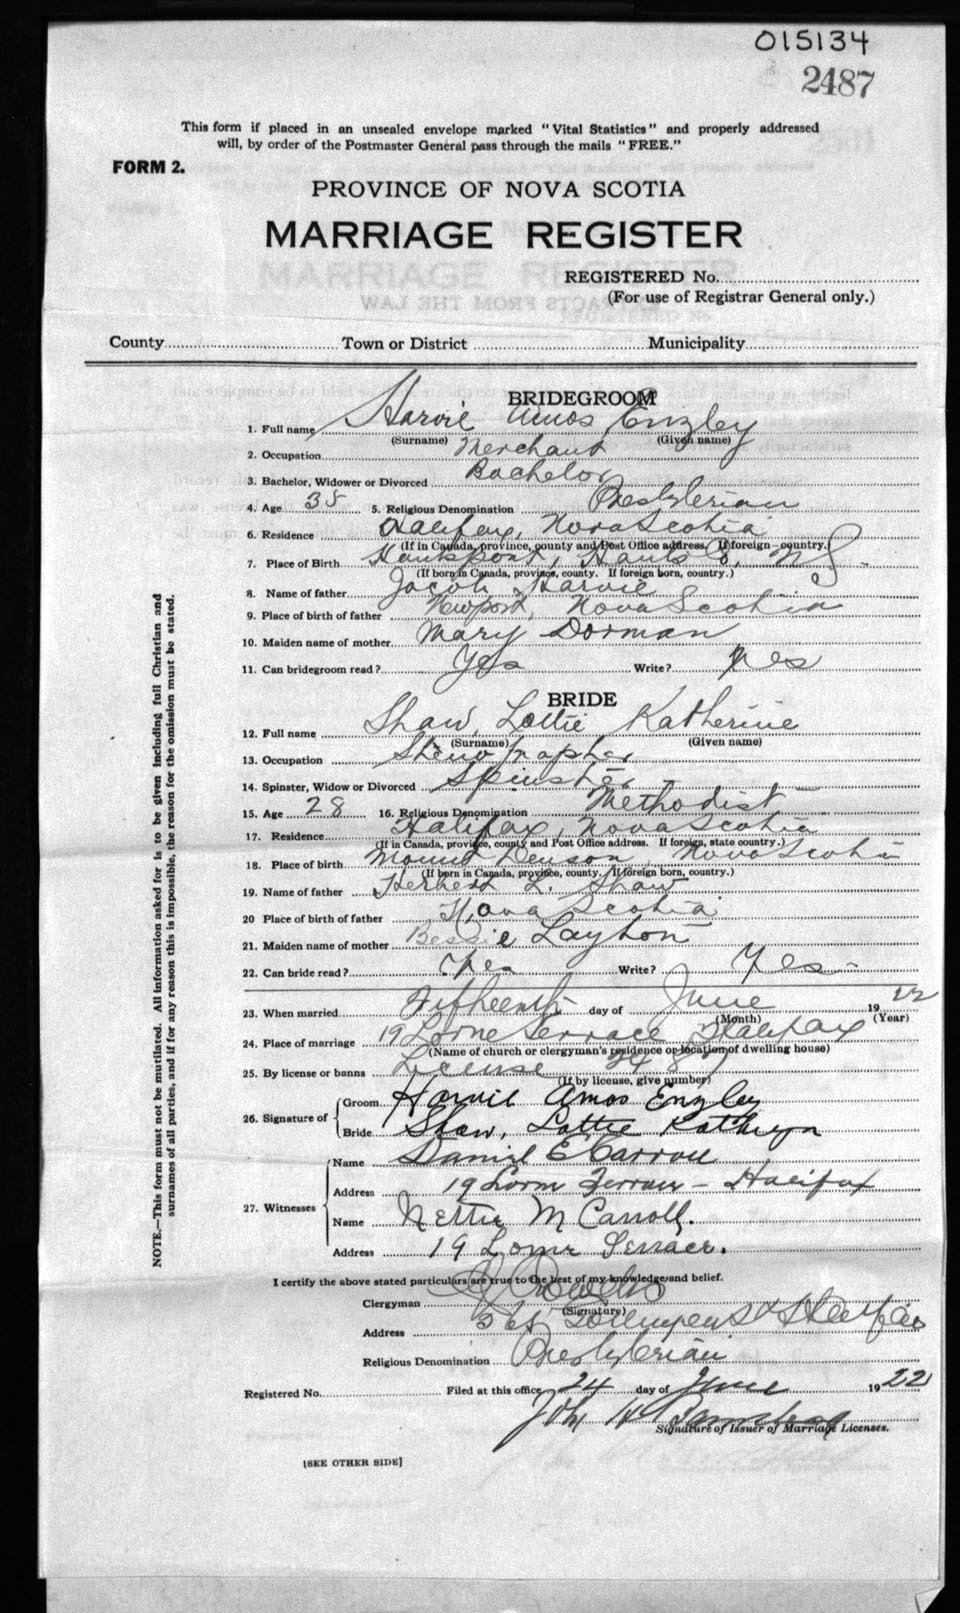 015134
2487
This form if placed in an unsealed envelope marked "Vital Statistics" and properly addressed
will, by order of the Postmaster General pass through the mails "FREE."
FORM 2.
PROVINCE OF NOVA SCOTIA
MARRIAGE REGISTER
REGISTERED No.
(For use of Registrar General only.)
County Town or District Municipality
BRIDEGROOM
1. Full name Harvie Amos Enzley
(Surname) (Given name)
2. Occupation Merchant
3. Bachelor, Widower or Divorced Bachelor
4. Age 38 5. Religious Denomination Presbyterian
6. Residence Halifax, Nova Scotia
(If in Canada, province, county and Post Office address. If foreign—country.)
7. Place of Birth Hantsport, Hants Co, N S.
(If born in Canada, province, county. If foreign born, country.)
8. Name of father Jacob Harvie
9. Place of birth of father Newport, Nova Scotia
10. Maiden name of mother Mary Dorman
11. Can bridegroom read? Yes Write? Yes
BRIDE
12. Full name Shaw, Lottie Katherine
(Surname) (Given name)
13. Occupation Stenographer
14. Spinster, Widow or Divorced Spinster
15. Age 28 16. Religious Denomination Methodist
17. Residence Halifax, Nova Scotia
(If in Canada, province, county and Post Office address. If foreign, state country.)
18. Place of birth Mount Denson, Nova Scotia
(If born in Canada, province, county. If foreign born, country.)
19. Name of father Herbert L. Shaw
20 Place of birth of father Nova Scotia
21. Maiden name of mother Bessie Layton
22. Can bride read? Yes Write? Yes
23. When married Fifteenth day of June 1922
(Month) (Year)
24. Place of marriage 19 Lorne Terrace Halifax
(Name of church or clergyman's residence or location of dwelling house)
25. By license or banns License 2487
(If by license, give number)
26. Signature of Groom Harvie Amos Enzley
Bride Shaw, Lottie Kathryn
27. Witnesses Name Daniel E Carroll
Address 19 Lorne Terrace - Halifax
Name Nettie M Carroll.
Address 19 Lorne Terrace.
I certify the above stated particulars are true to the best of my knowledge and belief.
Clergyman
(Signature)
Address St Halifax
Religious Denomination Presbyterian
Registered No. Filed at this office 24 day of June 1922
Signature of Issuer of Marriage Licenses.
[SEE OTHER SIDE]
NOTE.—This form must not be mutilated. All information asked for is to be given including full Christian and
surnames of all parties, and if for any reason this is impossible, the reason for the omission must be stated.